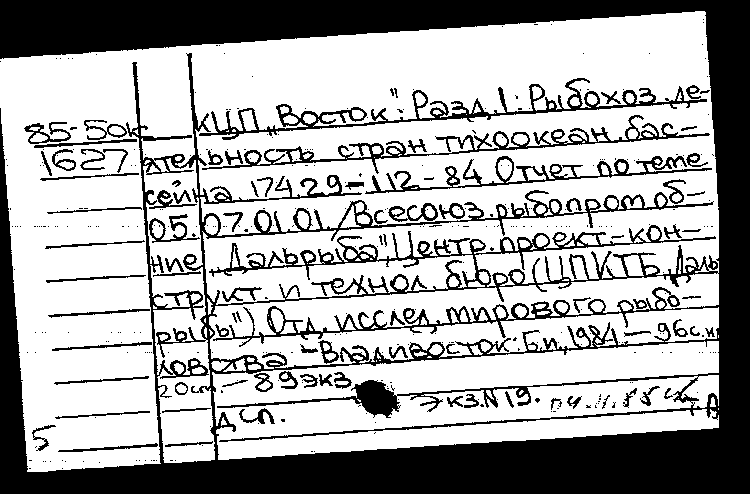 КЦП „Восток": Разд. 1: Рыбохоз. де-
85-50к
1627 ятельность стран тихоокеан. бас-
сейна. 174.29-112-84. Отчет по теме
05.07.01.01. /Всесоюз. рыбопром. об-
ние „Дальрыба", Центр. проект.-кон-
структ. и технол. бюро (ЦПКТБ „Даль
рыбы"), Отд. исслед. мирового рыбо-
ловства. - Владивосток: Б.и., 1984. - 96с.
20см. - 89экз.
ДСП. Экз. N 19.
5